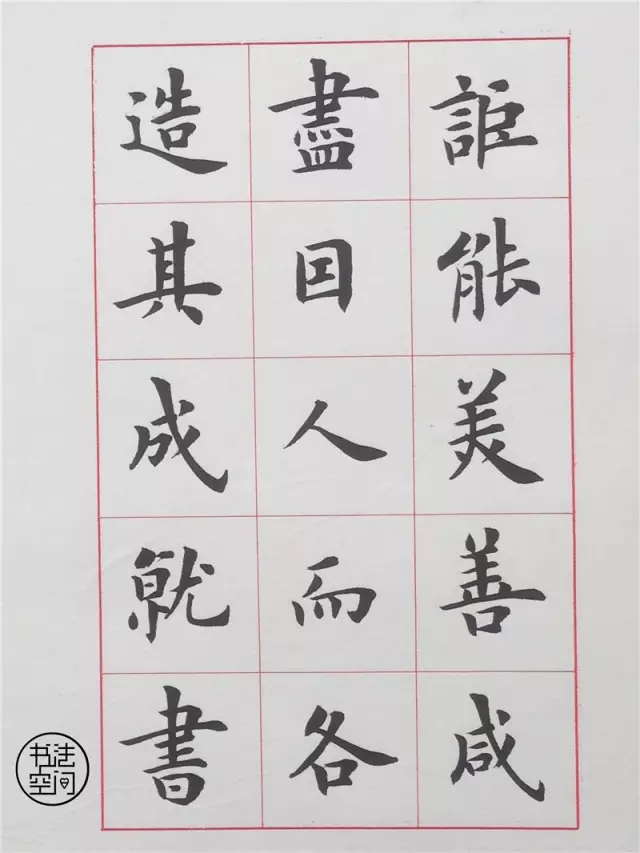 詎能美善咸
盡因人而各
造其成就書
书法
空间